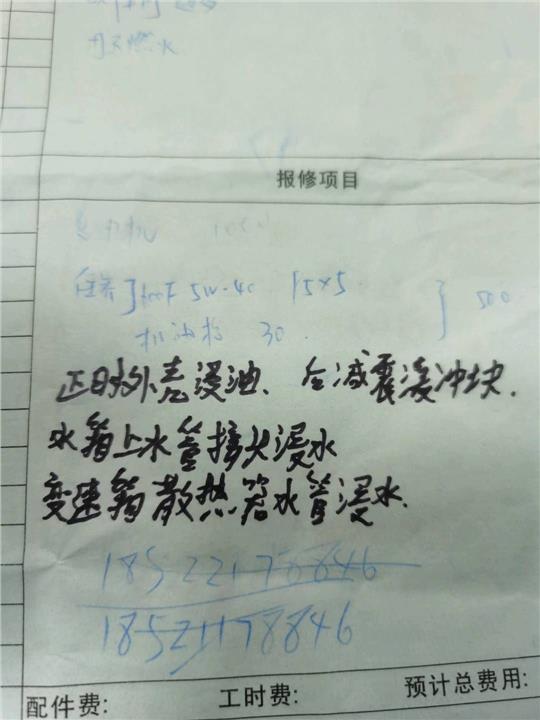 报修项目
保养 5W-40 15×5
500
机油格 30
正时外壳浸油、后减震缓冲块.
水箱上水管接头浸水
变速箱散热器水管浸水.
18522178846
18521178846
配件费: 工时费: 预计总费用: